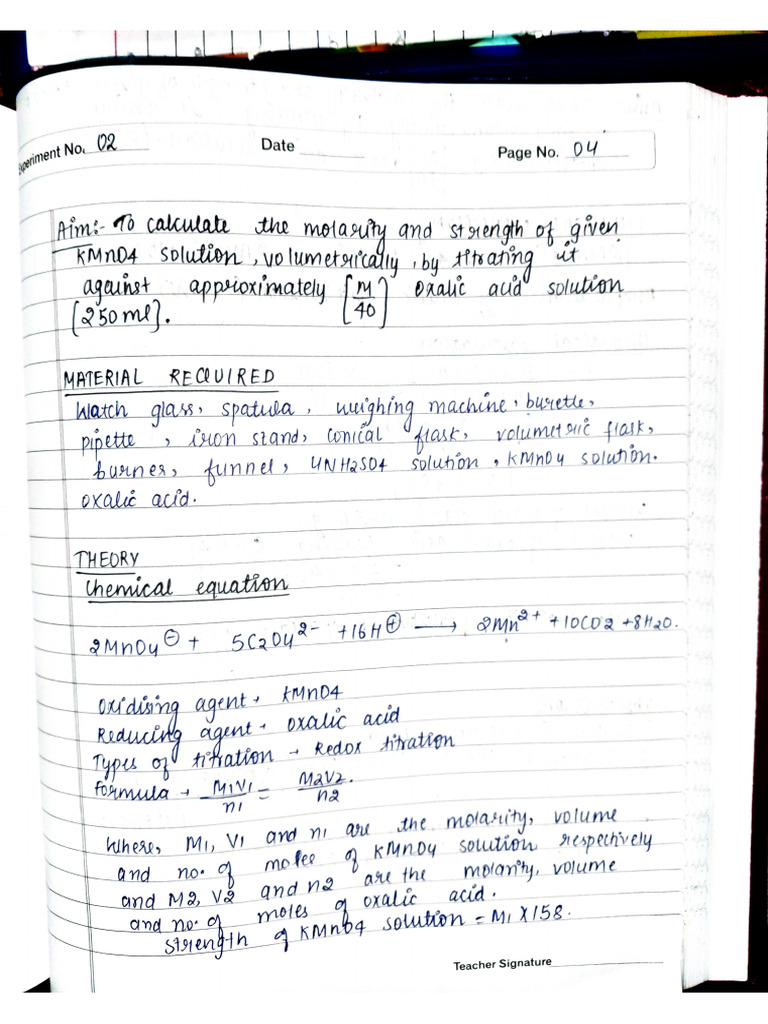 Experiment No. 02 Date Page No. 04
Aim:- To calculate the molarity and strength of given
KMnO4 solution, volumetrically, by titrating it
against approximately [M/40] oxalic acid solution
[250 ml].
MATERIAL REQUIRED
Watch glass, spatula, weighing machine, burette,
pipette, iron stand, conical flask, volumetric flask,
burner, funnel, 4NH2SO4 solution, KMnO4 solution.
oxalic acid.
THEORY
Chemical equation
2MnO4⊖ + 5C2O4²⁻ + 16H⊕ → 2Mn²⁺ + 10CO2 + 8H2O.
Oxidising agent → KMnO4
Reducing agent → Oxalic acid
Types of titration → Redox titration
Formula → M1V1/n1 = M2V2/n2.
Where, M1, V1 and n1 are the molarity, volume
and no. of molee of KMnO4 solution respectively
and M2, V2 and n2 are the molarity, volume
and no. of moles of oxalic acid.
strength of KMnO4 solution = M1 X 158.
Teacher Signature